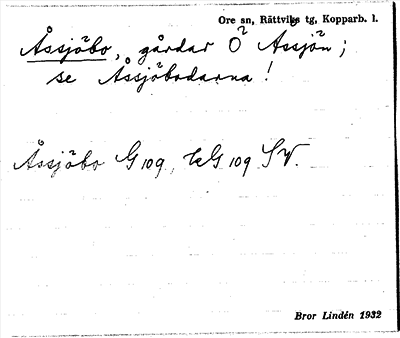 Ore sn, Rättviks tg, Kopparb. l.
Åssjöbo, gårdar Ö Assjön;
se Åssjöbodarna!
Åssjöbo G 109, kG 109 SV.
Bror Lindén 1932